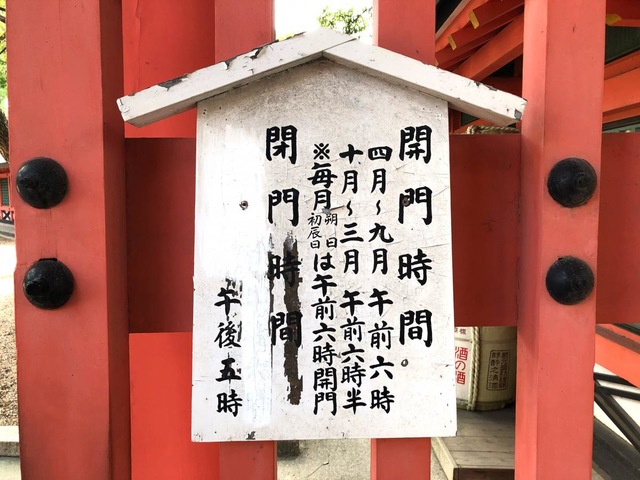 開門時間
四月～九月 午前六時
十月～三月 午前六時半
※毎月朔日初辰日は午前六時開門
閉門時間
午後五時
酒の酒